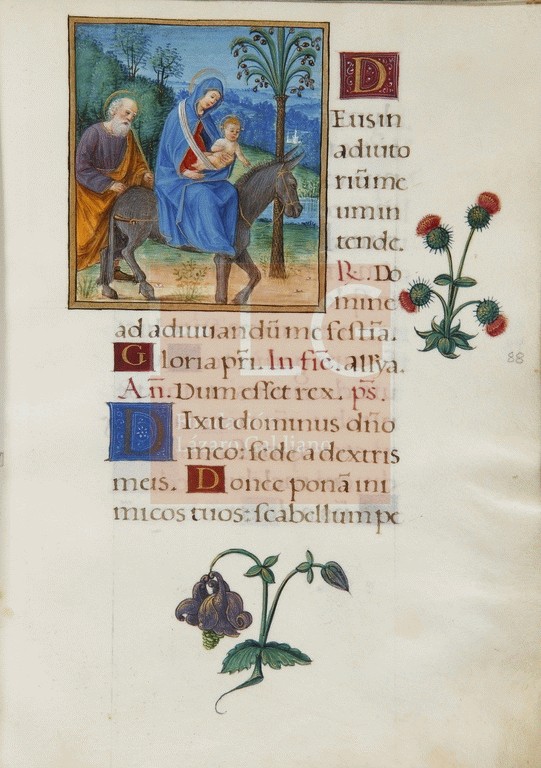 D
Eus in
adiuto
riū me
um in
tende.
R. Do
mine
ad adiuuandū me festīa.
Gloria pr̄i. In fīe. all'ya.
An̄. Dum esset rex. ps.
Dixit dominus dn̄o
meo: sede a dextris
meis. Donec ponā ini
micos tuos: scabellum pe
88
Lázaro Galdiano